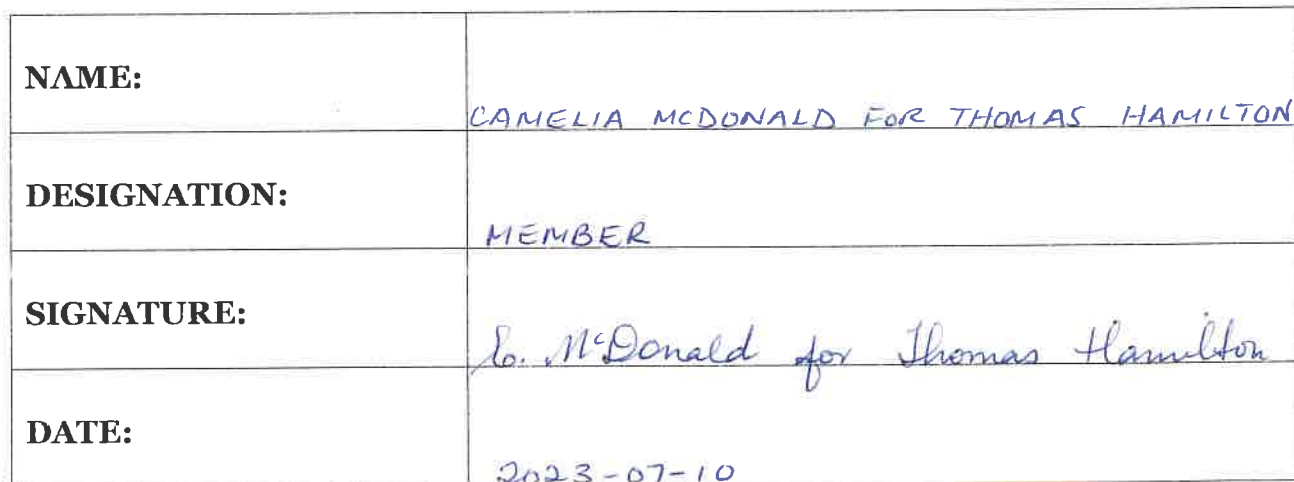 NAME:
CAMELIA MCDONALD FOR THOMAS HAMILTON
DESIGNATION:
MEMBER
SIGNATURE:
C. McDonald for Thomas Hamilton
DATE:
2023-07-10